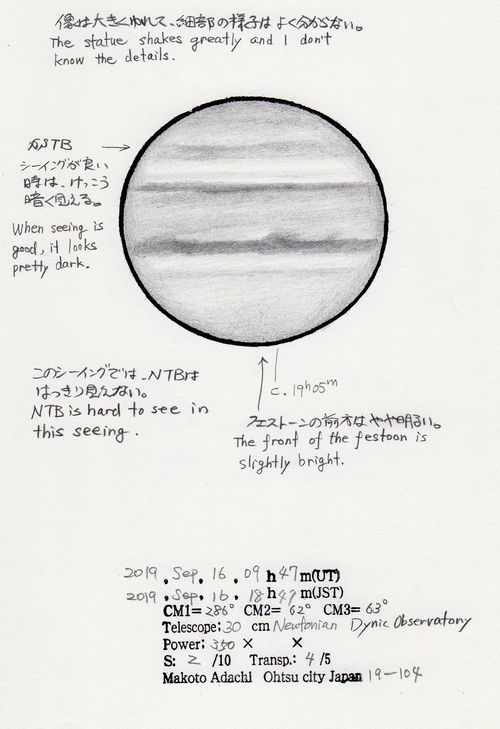 像は大きくゆれて、細部の様子はよく分からない。
The statue shakes greatly and I don't
know the details.
STB →
シーイングが良い
時は、けっこう
暗く見える。
When seeing is
good, it looks
pretty dark.
このシーイングでは、NTBは
はっきり見えない。
NTB is hard to see in
this seeing.
c. 19h05m
フェストーンの前方はやや明るい。
The front of the festoon is
slightly bright.
2019. Sep. 16. 09 h 47 m(UT)
2019. Sep. 16. 18 h 47 m(JST)
CM1= 286° CM2= 62° CM3= 63°
Telescope; 30 cm Newtonian Dynic Observatory
Power; 350 × ×
S: 2 /10 Transp.; 4 /5
Makoto Adachi Ohtsu city Japan 19-104